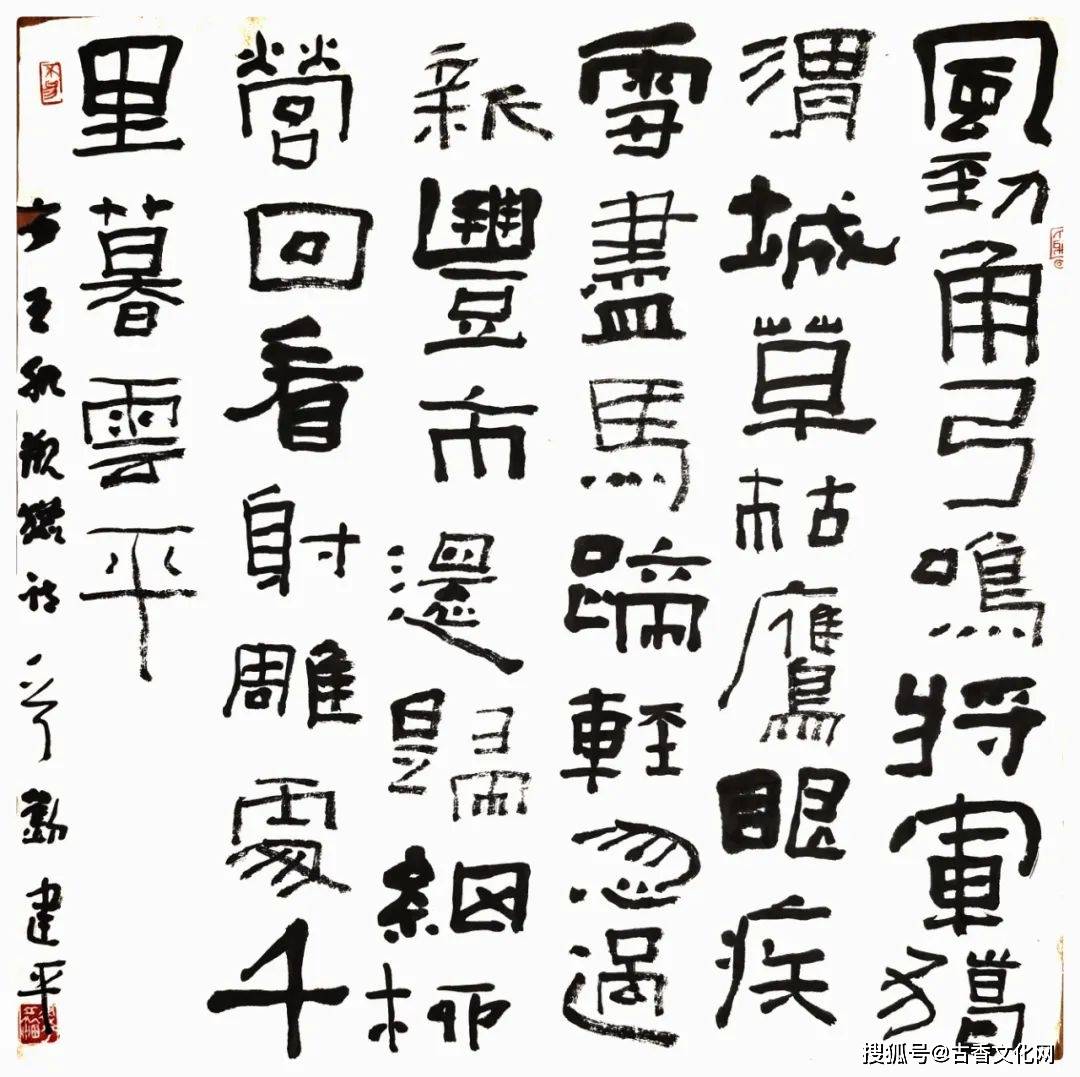 風勁角弓鳴將軍獵
渭城草枯鷹眼疾
雪盡馬蹄輕忽過
新豐市還歸細柳
營回看射雕處千
里暮雲平
王維觀獵詩 建平
搜狐号@古香文化网